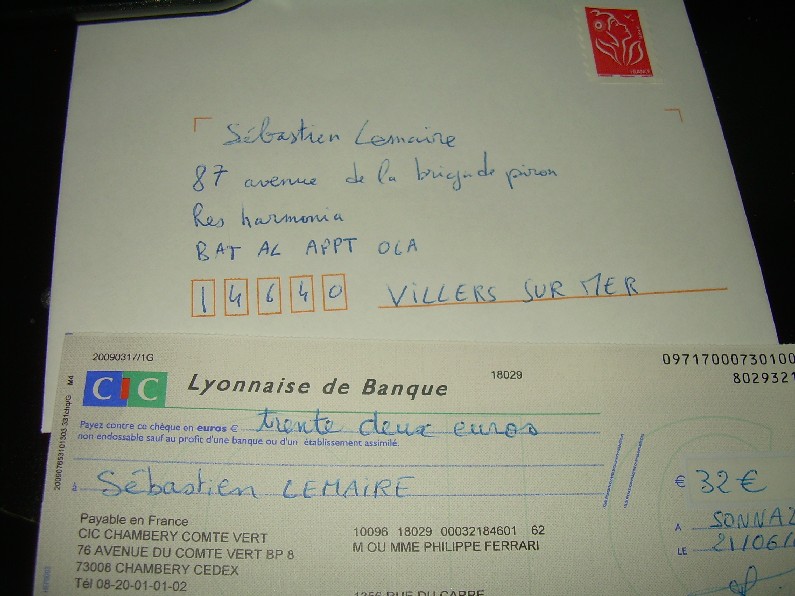 FRANCE
Sébastien Lemaire
87 avenue de la brigade piron
Res harmonia
BAT AL APPT OLA
14640 VILLERS SUR MER
20090317/1G
09717000730100
CIC Lyonnaise de Banque
18029
8029321
Payez contre ce chèque en euros € trente deux euros
non endossable sauf au profit d'une banque ou d'un établissement assimilé.
à Sébastien LEMAIRE
€ 32 €
Payable en France
CIC CHAMBERY COMTE VERT
76 AVENUE DU COMTE VERT BP 8
73008 CHAMBERY CEDEX
Tél 08-20-01-01-02
10096 18029 00032184601 62
M OU MME PHILIPPE FERRARI
A SONNAZ
LE 21/06/
1256 RUE DU CARRE